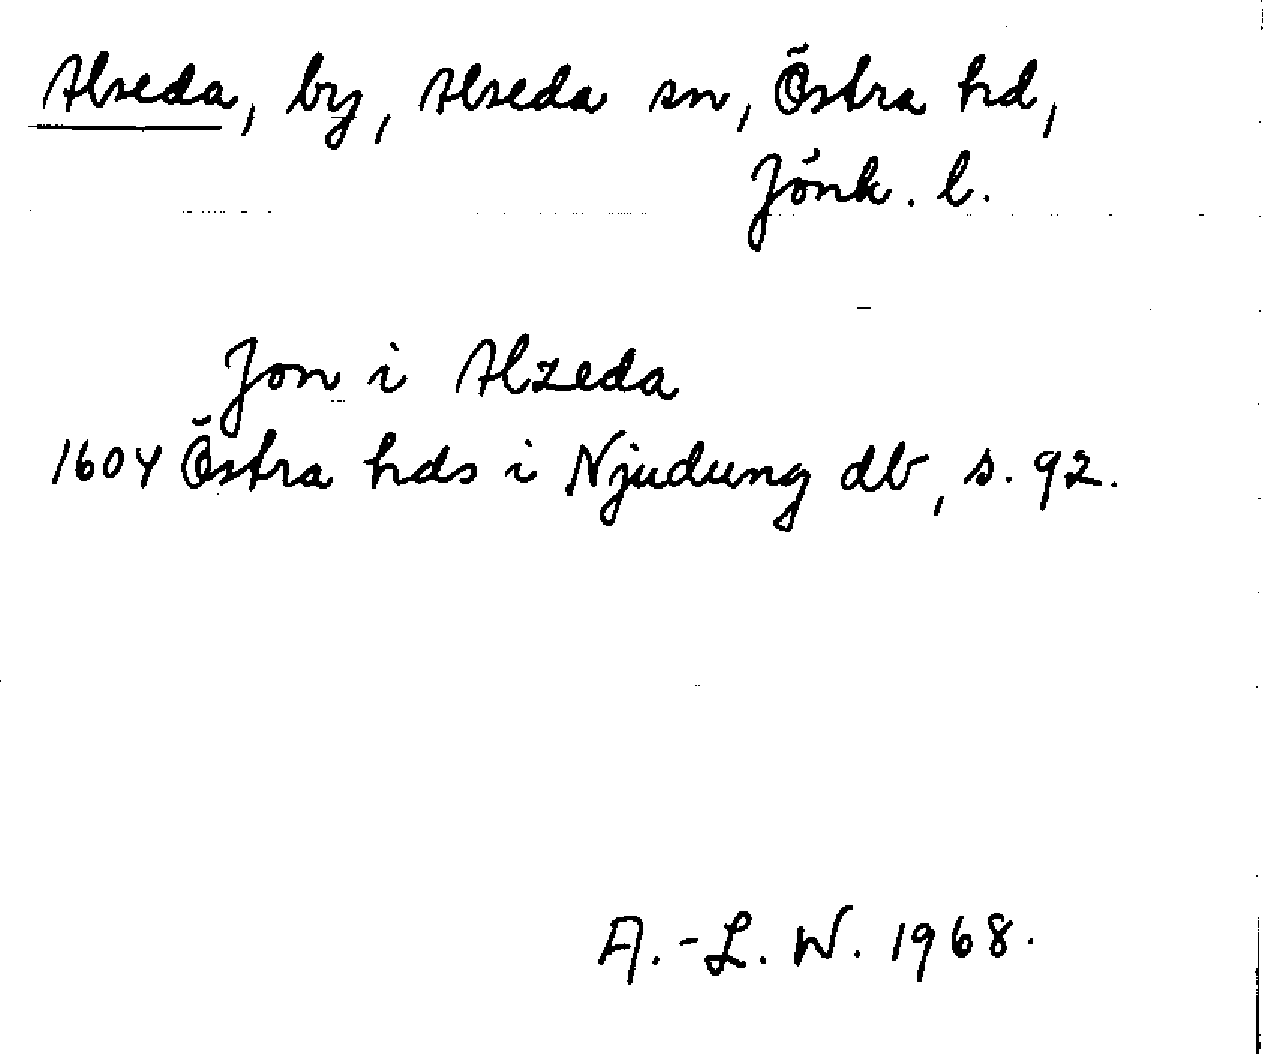 Alseda, by, Alseda sn, Östra hd,
Jönk. l.
Jon i Alzeda
1604 Östra hds i Njudung db, s. 92.
A.-L. W. 1968.